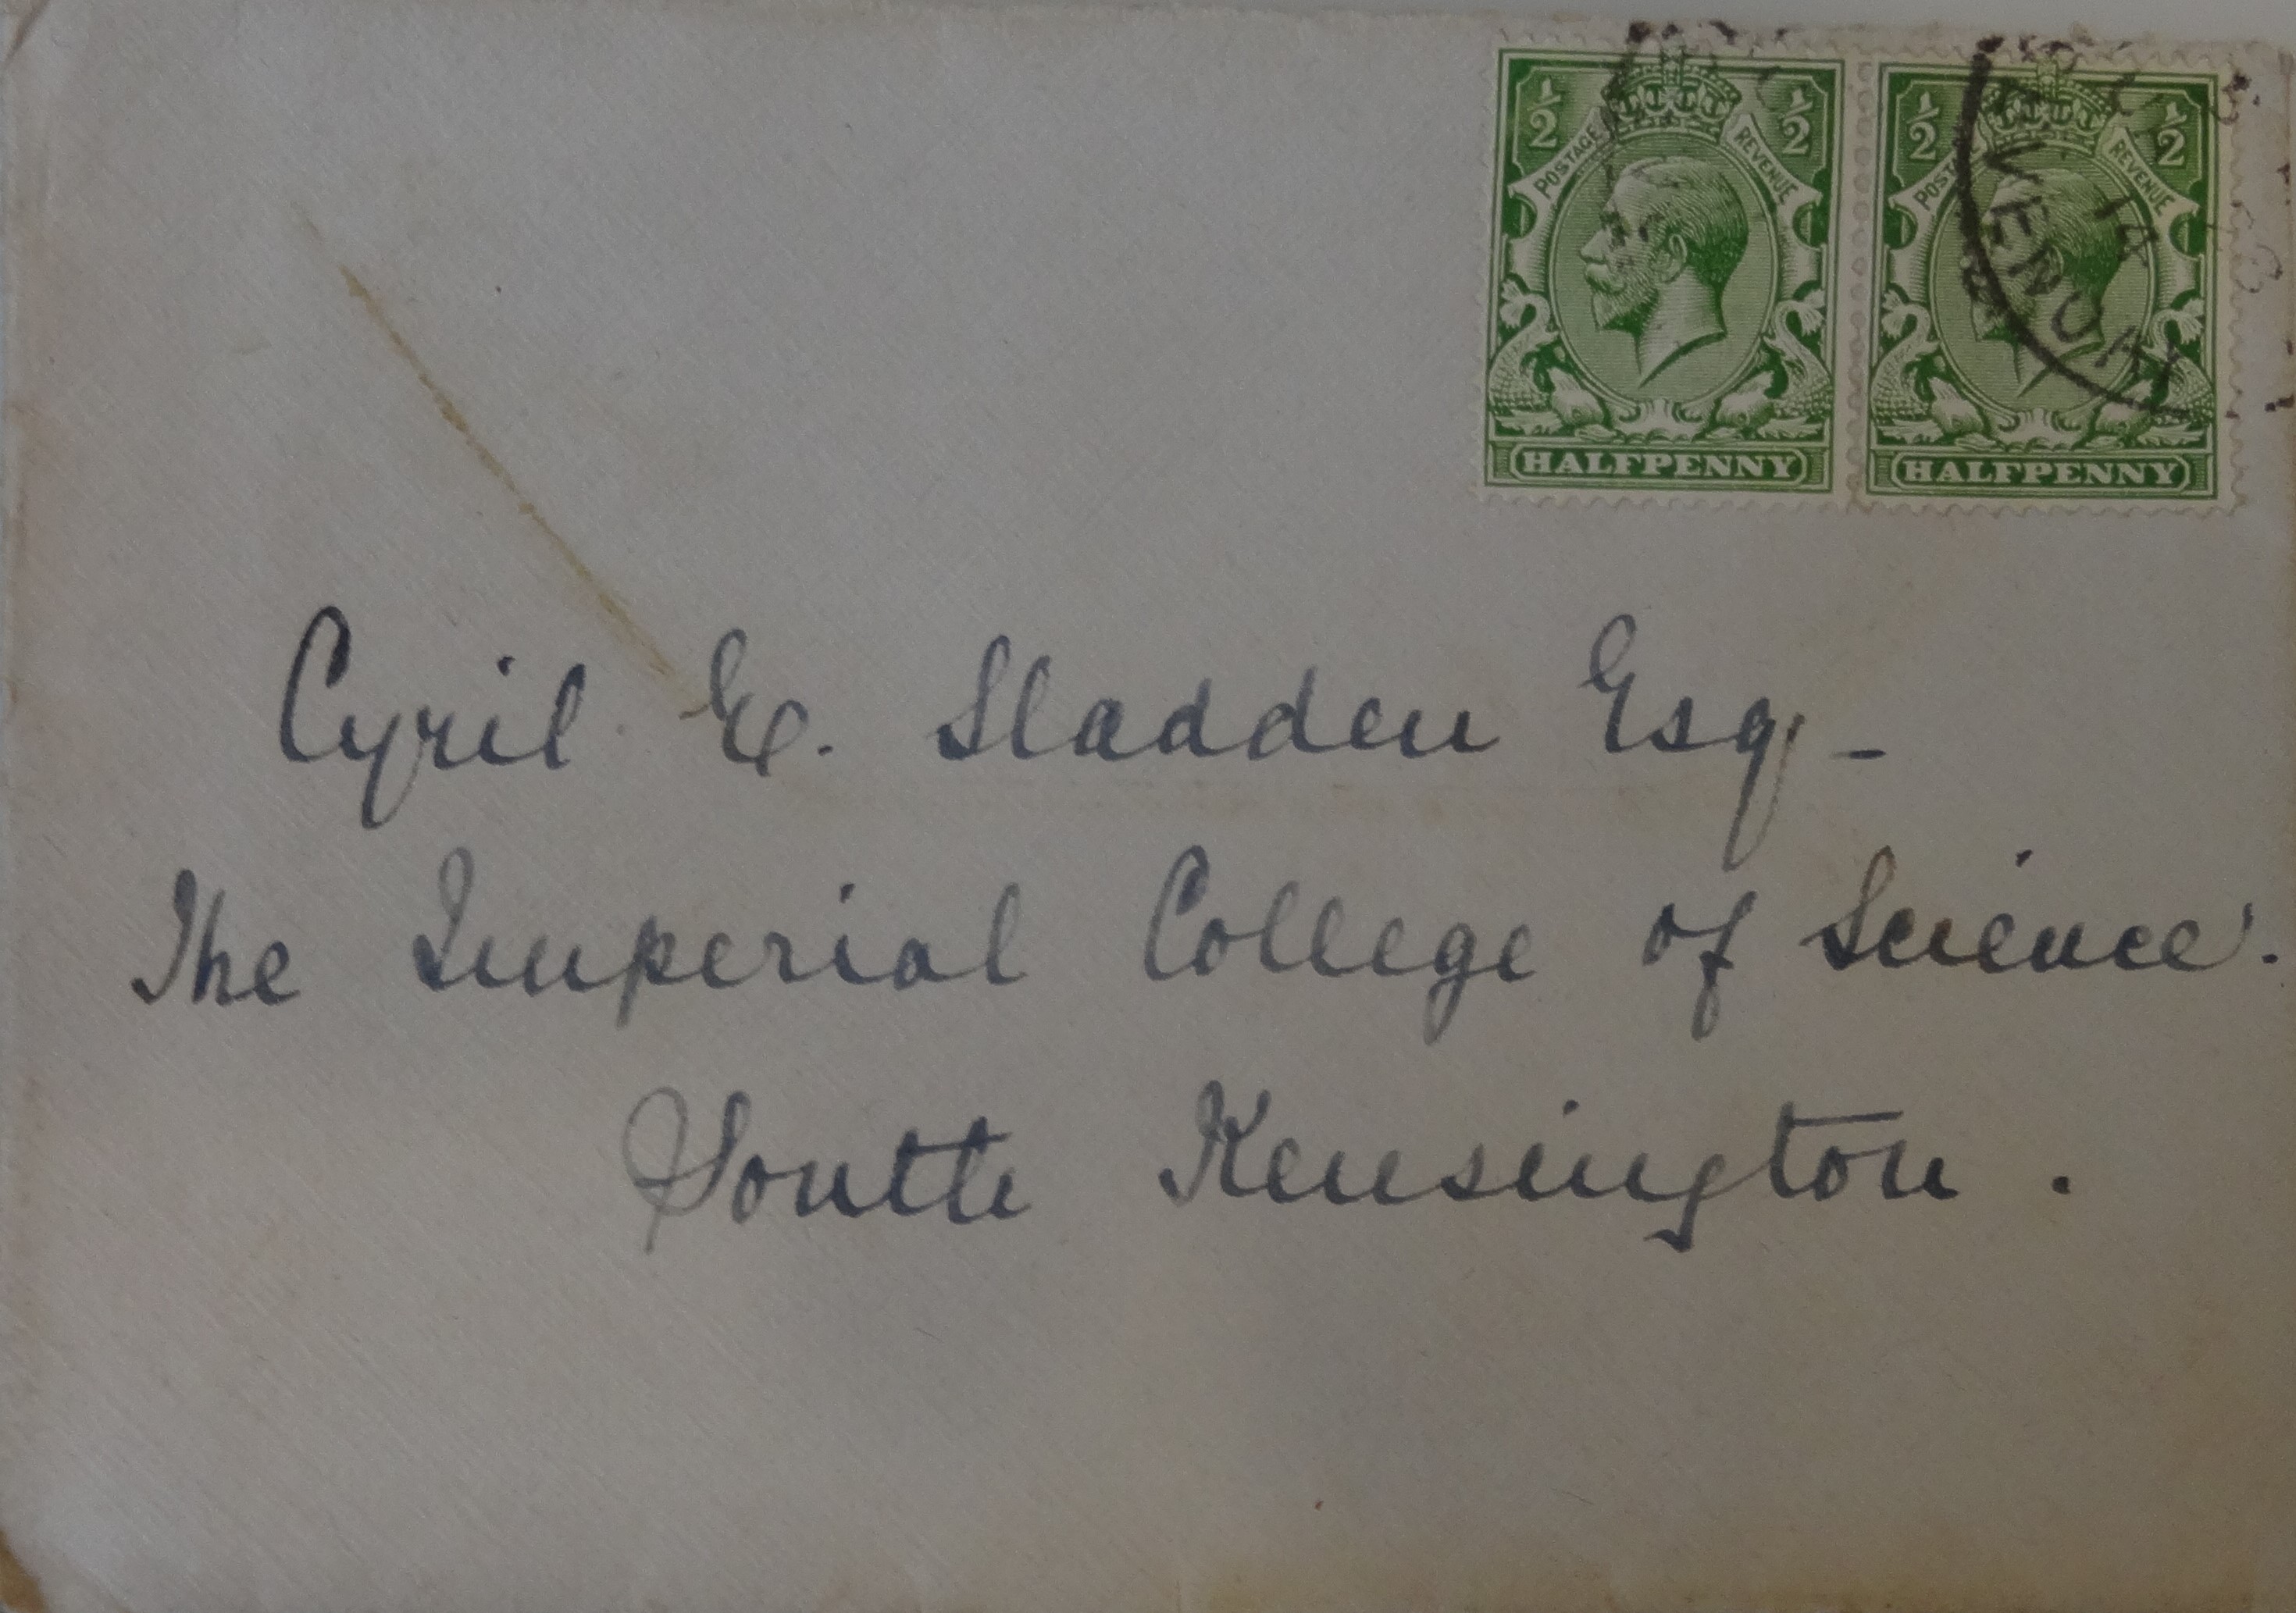 ½ POSTAGE REVENUE ½ ½ REVENUE ½
14
HALFPENNY HALFPENNY
Cyril E. Sladden Esq -
The Imperial College of Science.
South Kensington.